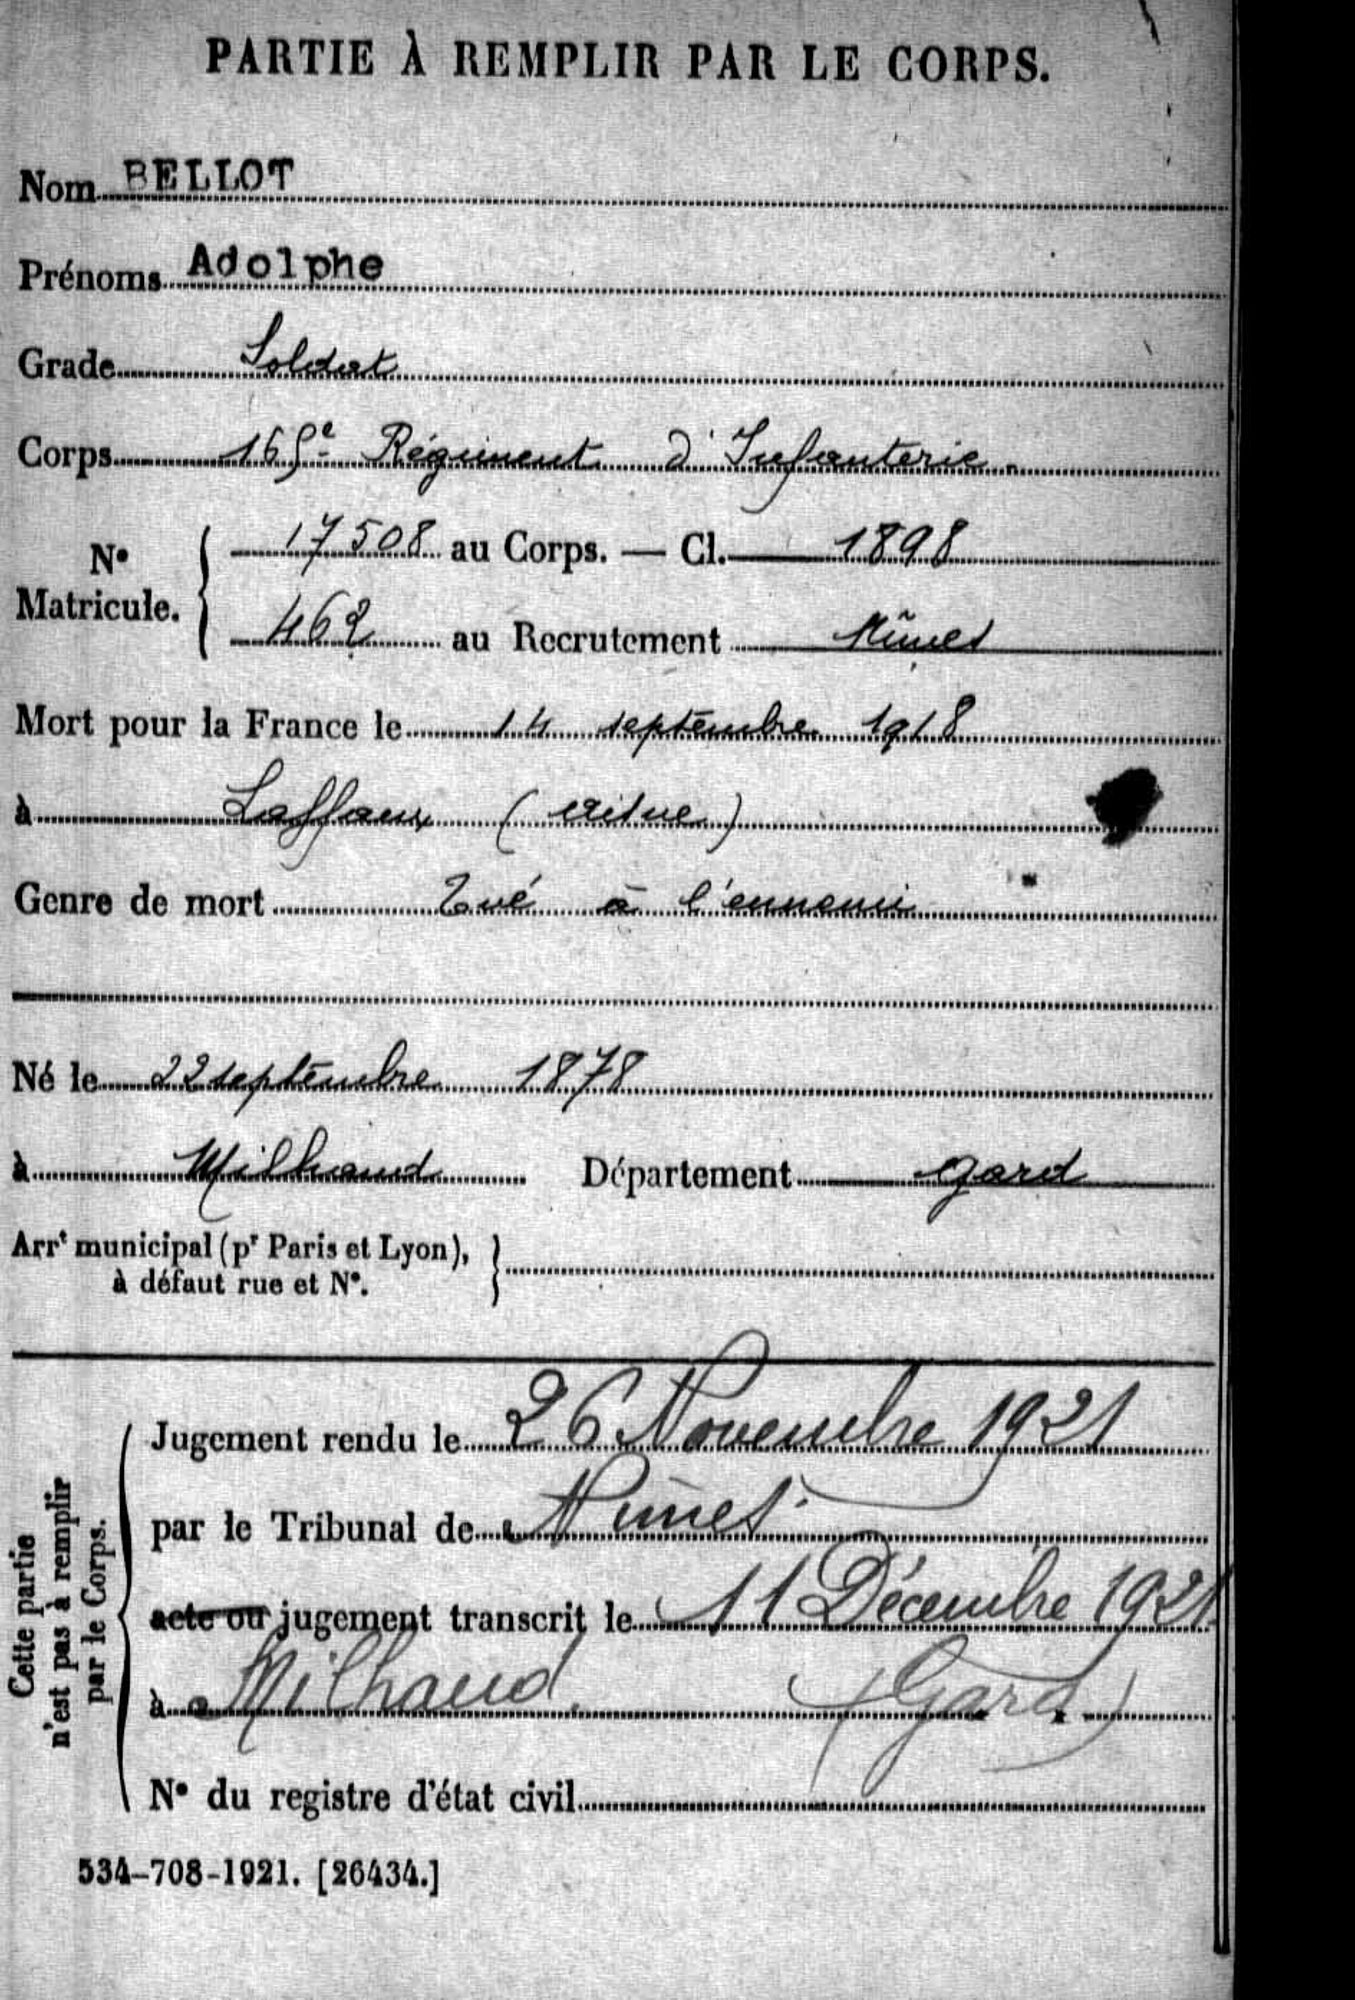 PARTIE À REMPLIR PAR LE CORPS.
Nom BELLOT
Prénoms Adolphe
Grade Soldat
Corps 165e Régiment d'Infanterie.
N° Matricule. { 17508 au Corps. — Cl. 1898
462 au Recrutement Nîmes
Mort pour la France le 14 septembre 1918
à Laffaux (aisne)
Genre de mort Tué à l'ennemi
Né le 22 septembre 1878
à Milhaud Département Gard
Arrt municipal (pr Paris et Lyon), }
à défaut rue et N°.
Cette partie
n'est pas à remplir
par le Corps.
Jugement rendu le 26 Novembre 1921
par le Tribunal de Nîmes
acte ou jugement transcrit le 11 Décembre 1921
à Milhaud (Gard)
N° du registre d'état civil
534-708-1921. [26434.]